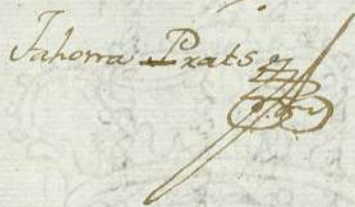 Jahorra Prats